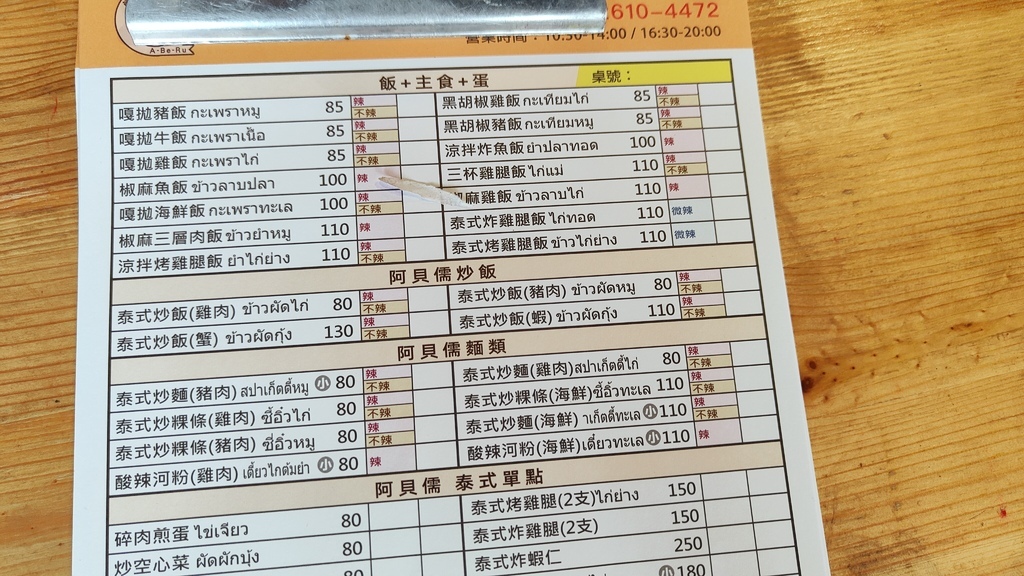 A-Be-Ru
610-4472
營業時間：10:30-14:00 / 16:30-20:00
飯+主食+蛋 桌號：
嘎拋豬飯 กะเพราหมู 85 辣 不辣
黑胡椒雞飯 กะเทียมไก่ 85 辣 不辣
嘎拋牛飯 กะเพราเนื้อ 85 辣 不辣
黑胡椒豬飯 กะเทียมหมู 85 辣 不辣
嘎拋雞飯 กะเพราไก่ 85 辣 不辣
涼拌炸魚飯 ยำปลาทอด 100 辣
椒麻魚飯 ข้าวลาบปลา 100 辣
三杯雞腿飯 ไก่แม่ 110 辣 不辣
嘎拋海鮮飯 กะเพราทะเล 100 辣 不辣
麻雞飯 ข้าวลาบไก่ 110 辣
椒麻三層肉飯 ข้าวยำหมู 110 辣
泰式炸雞腿飯 ไก่ทอด 110 微辣
涼拌烤雞腿飯 ยำไก่ย่าง 110 辣 不辣
泰式烤雞腿飯 ข้าวไก่ย่าง 110 微辣
阿貝儒炒飯
泰式炒飯(雞肉) ข้าวผัดไก่ 80 辣 不辣
泰式炒飯(豬肉) ข้าวผัดหมู 80 辣 不辣
泰式炒飯(蟹) ข้าวผัดกุ้ง 130 辣 不辣
泰式炒飯(蝦) ข้าวผัดกุ้ง 110 辣 不辣
阿貝儒麵類
泰式炒麵(豬肉) สปาเก็ตตี้หมู 小 80 辣 不辣
泰式炒麵(雞肉) สปาเก็ตตี้ไก่ 80 辣 不辣
泰式炒粿條(雞肉) ซี้อิ๊วไก่ 80 辣 不辣
泰式炒粿條(海鮮) ซี้อิ๊วทะเล 110 辣 不辣
泰式炒粿條(豬肉) ซี้อิ๊วหมู 80 辣 不辣
泰式炒麵(海鮮) าเก็ตตี้ทะเล 小 110 辣 不辣
酸辣河粉(雞肉) เตี๋ยวไก่ต้มยำ 小 80 辣
酸辣河粉(海鮮) เตี๋ยวทะเล 小 110 辣
阿貝儒 泰式單點
碎肉煎蛋 ไข่เจียว 80
泰式烤雞腿(2支) ไก่ย่าง 150
炒空心菜 ผัดผักบุ้ง 80
泰式炸雞腿(2支) 150
泰式炸蝦仁 250
80
小 180